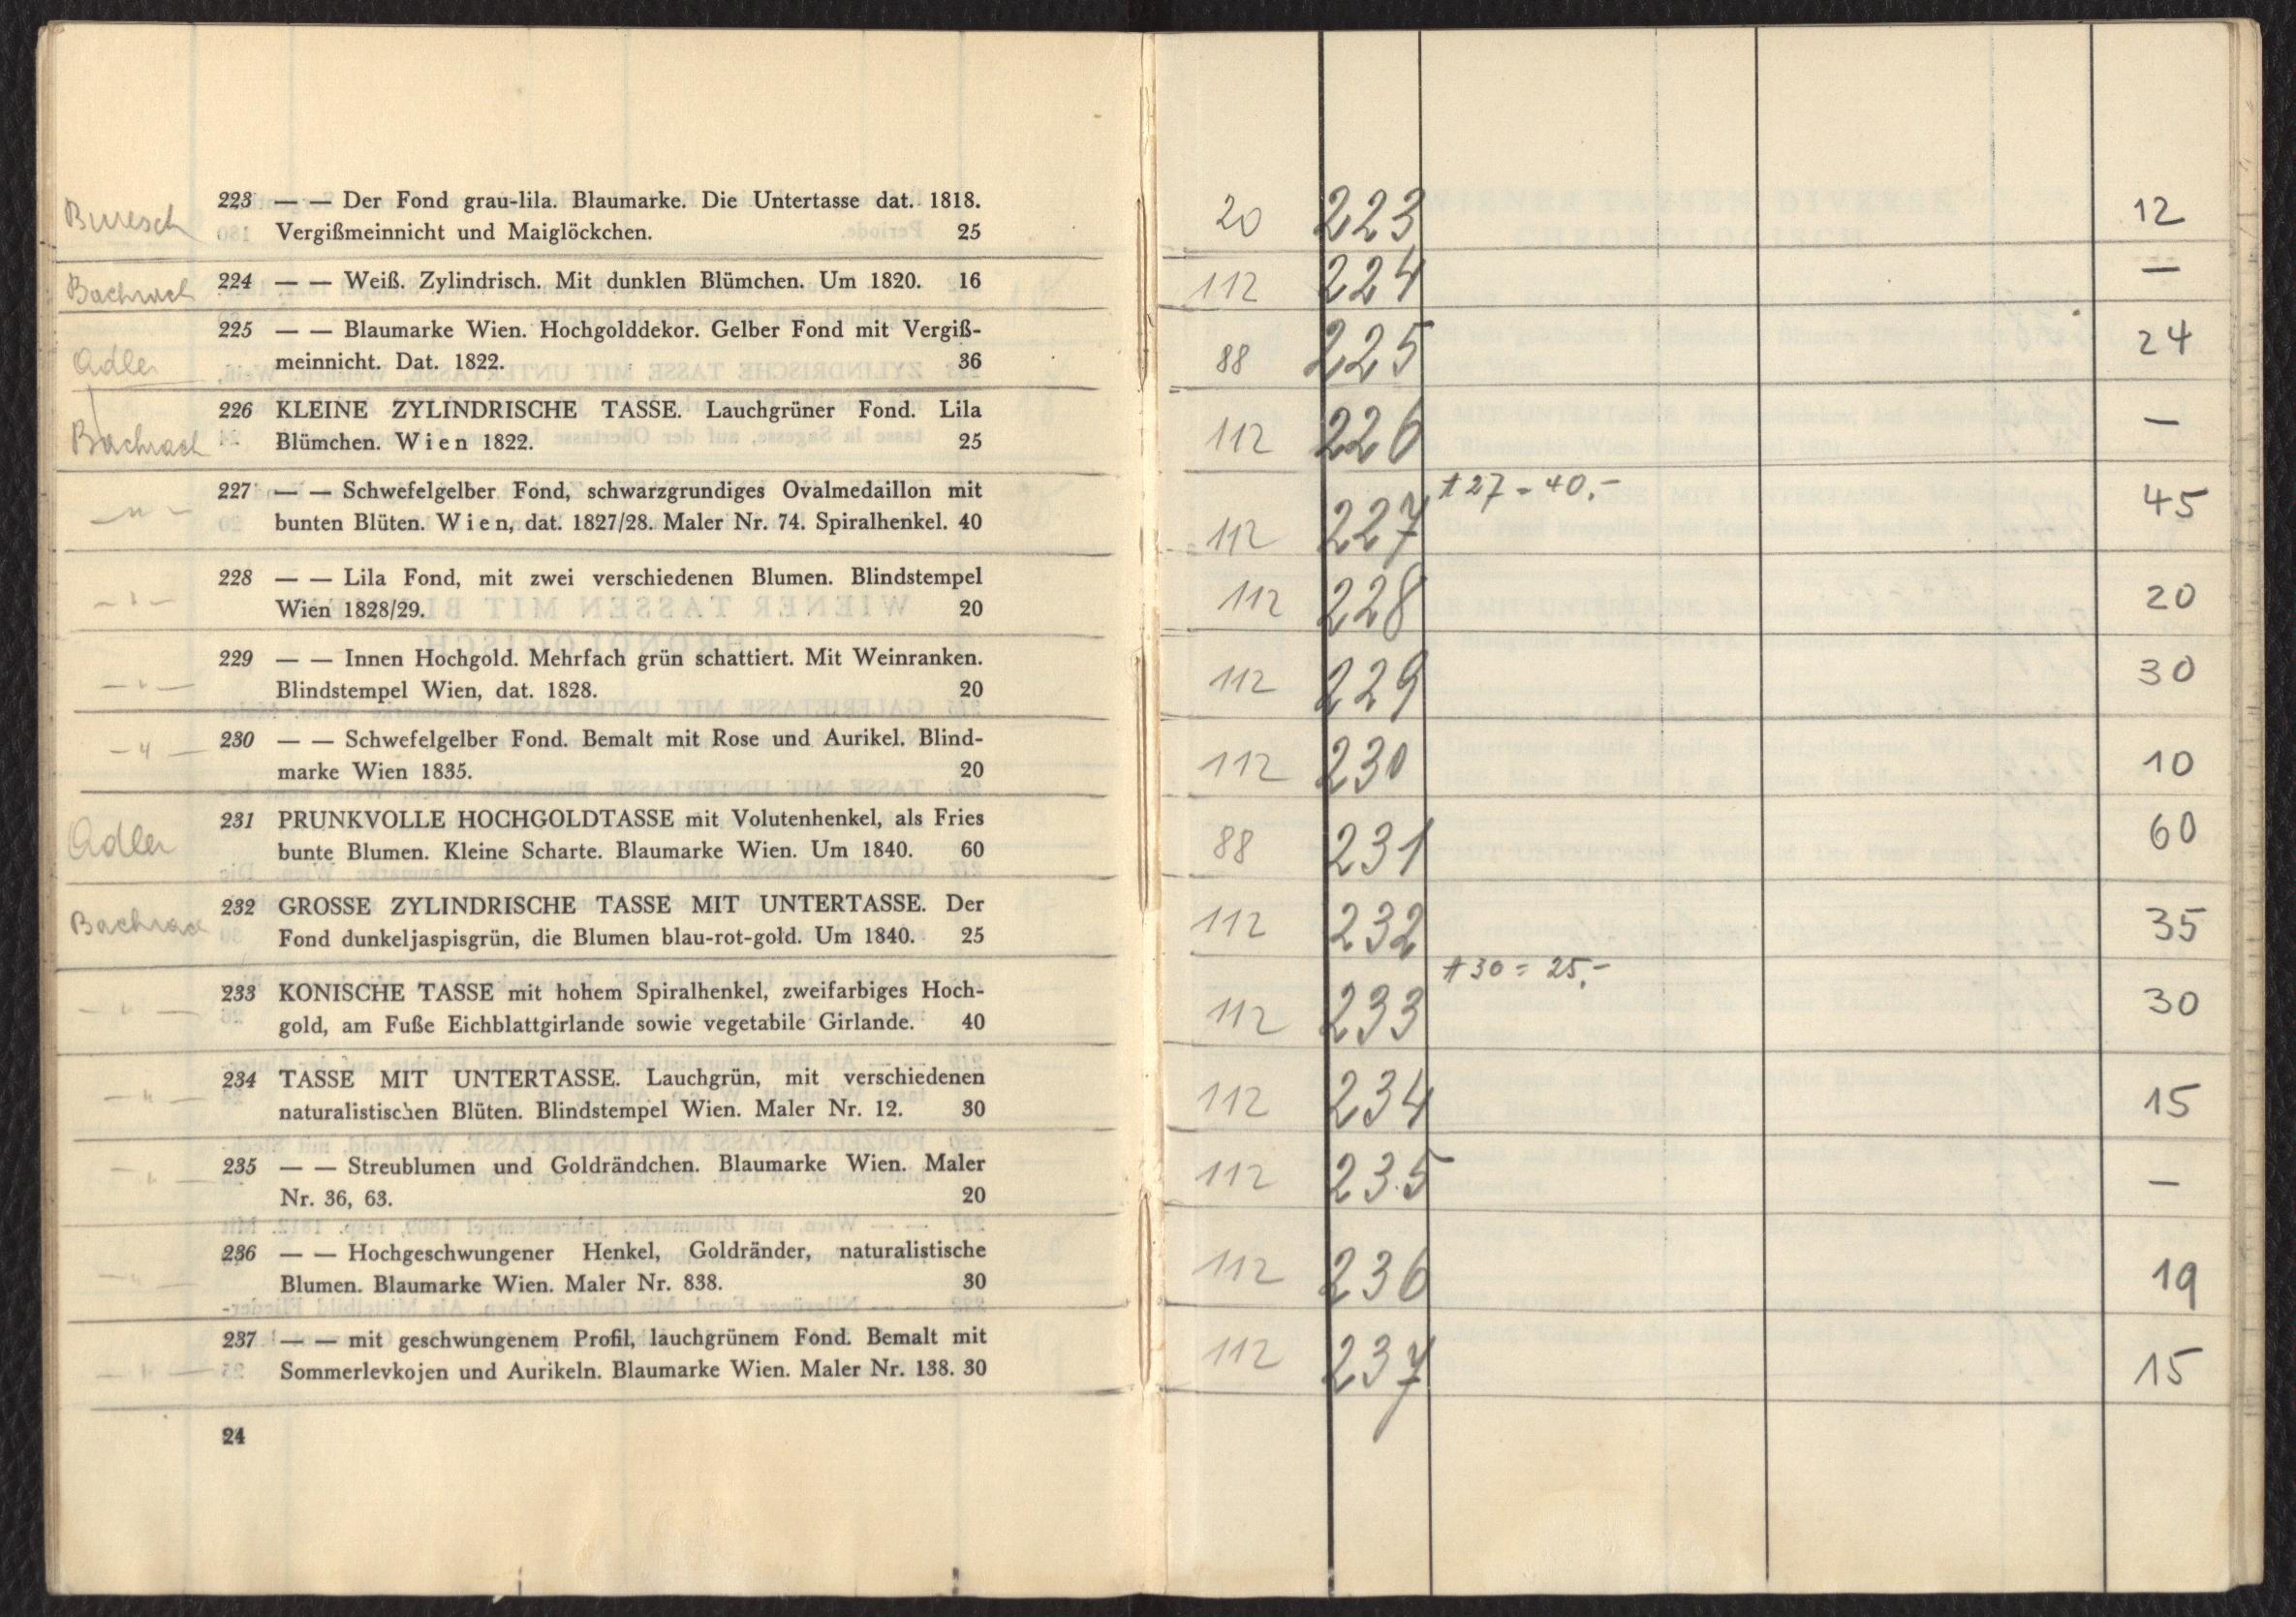 Buresch
223 — — Der Fond grau-lila. Blaumarke. Die Untertasse dat. 1818.
Vergißmeinnicht und Maiglöckchen. 25
Bachrach
224 — — Weiß. Zylindrisch. Mit dunklen Blümchen. Um 1820. 16
225 — — Blaumarke Wien. Hochgolddekor. Gelber Fond mit Vergiß-
Adler
meinnicht. Dat. 1822. 36
226 KLEINE ZYLINDRISCHE TASSE. Lauchgrüner Fond. Lila
Bachrach
Blümchen. Wien 1822. 25
227 — — Schwefelgelber Fond, schwarzgrundiges Ovalmedaillon mit
— " —
bunten Blüten. Wien, dat. 1827/28. Maler Nr. 74. Spiralhenkel. 40
228 — — Lila Fond, mit zwei verschiedenen Blumen. Blindstempel
— " —
Wien 1828/29. 20
229 — — Innen Hochgold. Mehrfach grün schattiert. Mit Weinranken.
— " —
Blindstempel Wien, dat. 1828. 20
230 — — Schwefelgelber Fond. Bemalt mit Rose und Aurikel. Blind-
— " —
marke Wien 1835. 20
231 PRUNKVOLLE HOCHGOLDTASSE mit Volutenhenkel, als Fries
Adler
bunte Blumen. Kleine Scharte. Blaumarke Wien. Um 1840. 60
232 GROSSE ZYLINDRISCHE TASSE MIT UNTERTASSE. Der
Bachrach
Fond dunkeljaspisgrün, die Blumen blau-rot-gold. Um 1840. 25
233 KONISCHE TASSE mit hohem Spiralhenkel, zweifarbiges Hoch-
— " —
gold, am Fuße Eichblattgirlande sowie vegetabile Girlande. 40
234 TASSE MIT UNTERTASSE. Lauchgrün, mit verschiedenen
— " —
naturalistischen Blüten. Blindstempel Wien. Maler Nr. 12. 30
235 — — Streublumen und Goldrändchen. Blaumarke Wien. Maler
— " —
Nr. 36, 63. 20
236 — — Hochgeschwungener Henkel, Goldränder, naturalistische
— " —
Blumen. Blaumarke Wien. Maler Nr. 838. 30
237 — — mit geschwungenem Profil, lauchgrünem Fond. Bemalt mit
— " —
Sommerlevkojen und Aurikeln. Blaumarke Wien. Maler Nr. 138. 30
24
20 223 12
112 224 —
88 225 24
112 226 —
+ 27 = 40,-
112 227 45
112 228 20
112 229 30
112 230 10
88 231 60
112 232 35
+ 30 = 25,-
112 233 30
112 234 15
112 235 —
112 236 19
112 237 15